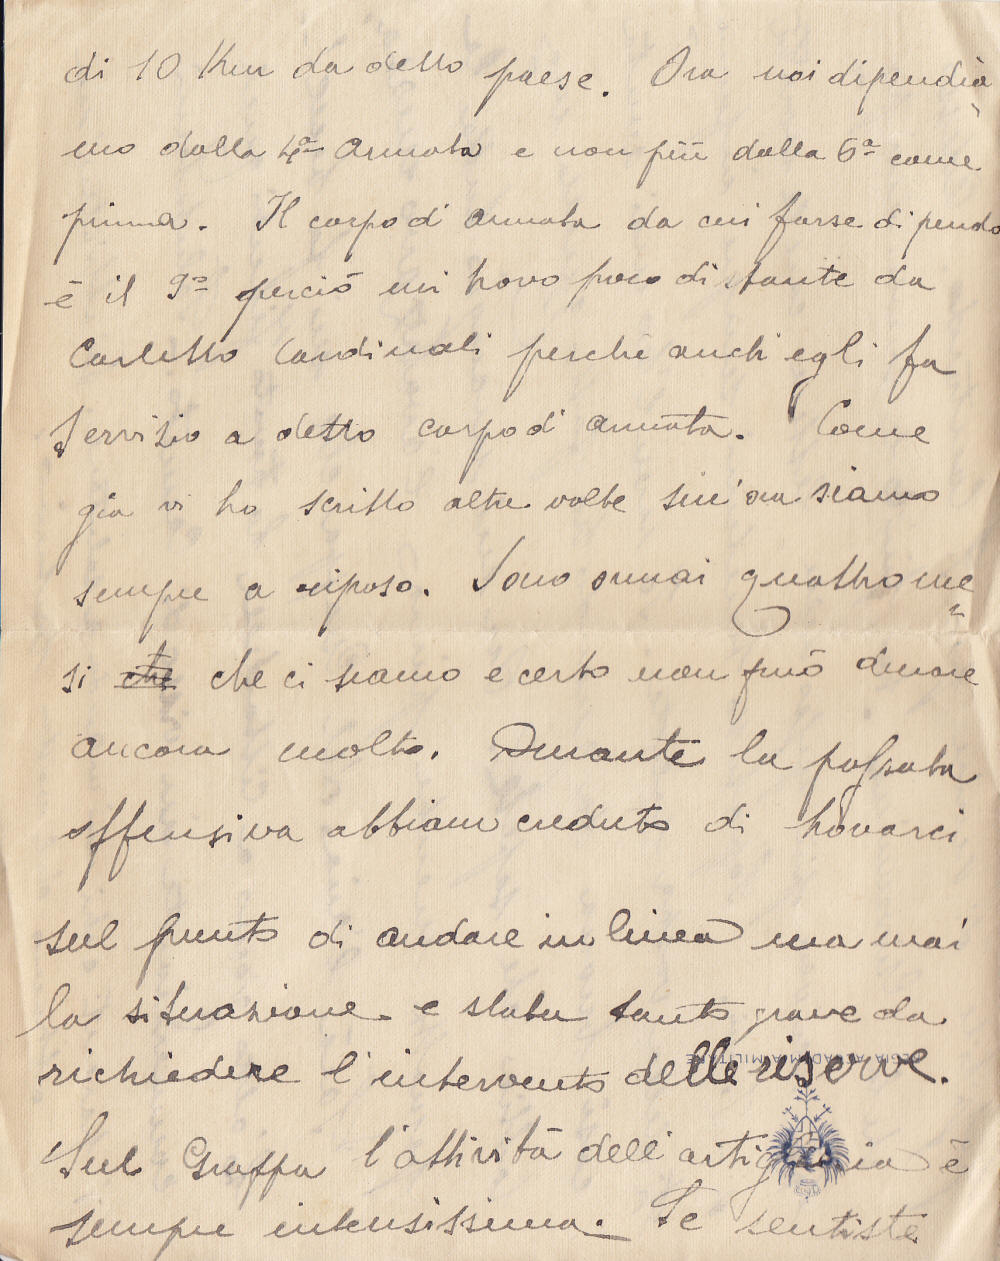 di 10 Km da detto paese. Ora noi dipendia
mo dalla 4ª Armata e non più dalla 6ª come
prima. Il corpo d'armata da cui forse dipendo
è il 9º perciò mi trovo poco distante da
Carletto Cardinali perchè anch'egli fa
servizio a detto corpo d'armata. Come
già vi ho scritto altre volte sin'ora siamo
sempre a riposo. Sono ormai quattro me
si che che ci siamo e certo non può durare
ancora molto. Durante la passata
offensiva abbiam creduto di trovarci
sul punto di andare in linea ma mai
la situazione è stata tanto grave da
REGIA ACCADEMIA MILITARE
richiedere l'intervento delle riserve.
Sul Grappa l'attività dell'artiglieria è
sempre intensissima. Se sentiste